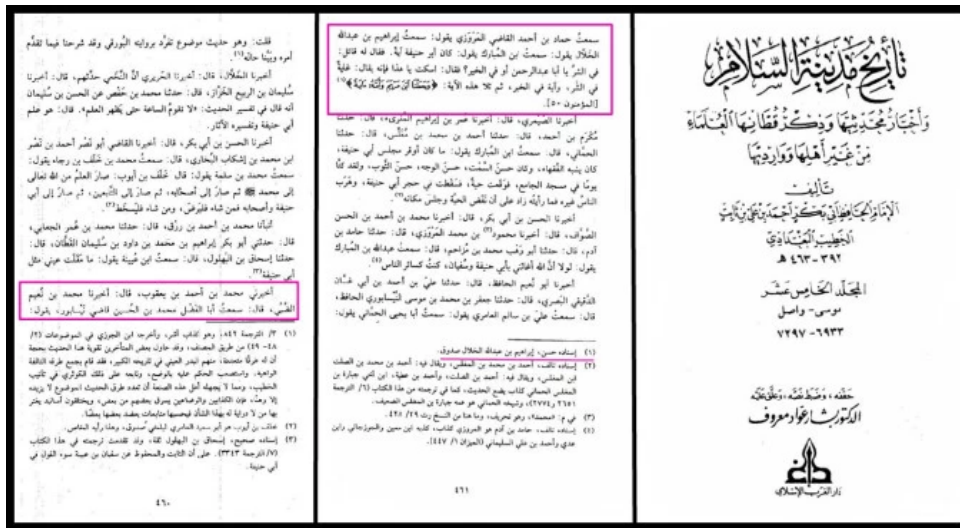 تاريخ مدينة السلام
وأخبار محدثيها وذكر قطانها العلماء
من غير أهلها ووارديها
تأليف
الإمام الحافظ أبي بكر أحمد بن علي بن ثابت
الخطيب البغدادي
٣٩٢ - ٤٦٣ هـ
المجلد الخامس عشر
موسى - واصل
٦٩٣٣ - ٧٢٩٧
حققه، وضبط نصه، وعلق عليه
الدكتور بشار عواد معروف
دار الغرب الإسلامي
سمعتُ حماد بن أحمد القاضي المَرْوَزي يقول: سمعتُ إبراهيم بن عبدالله
الخَلَّال يقول: سمعتُ ابن المُبارك يقول: كان أبو حنيفة آيةً. فقال له قائل:
في الشر يا أبا عبدالرحمن أو في الخير؟ فقال: اسكت يا هذا فإنه يقال: غايةٌ
في الشَّر، وآية في الخير، ثم تلا هذه الآية: ﴿وَجَعَلْنَا ابْنَ مَرْيَمَ وَأُمَّهُ آيَةً﴾(١)
[المؤمنون ٥٠].
أخبرنا الصَّيمري، قال: أخبرنا عمر بن إبراهيم المقرىء، قال: حدثنا
مُكْرَم بن أحمد، قال: حدثنا أحمد بن محمد بن مُغَلِّس، قال: حدثنا
الحِمَّاني، قال: سمعتُ ابن المُبارك يقول: ما كان أوقر مجلس أبي حنيفة،
كان يشبه الفُقهاء، وكان حسنَ السَّمْت، حسنَ الوجه، حسنَ الثَّوب، ولقد كنَّا
يومًا في مسجد الجامع، فوقعت حيةٌ، فسَقَطت في حجر أبي حنيفة، وهَرَب
الناسُ غيره فما رأيتُه زاد على أن نَفَض الحيَّة وجلس مكانه(٢).
أخبرنا الحسن بن أبي بكر، قال: أخبرنا محمد بن أحمد بن الحسن
الصَّوَّاف، قال: أخبرنا محمود(٣) بن محمد المَرْوَزي، قال: حدثنا حامد بن
آدم، قال: حدثنا أبو وَهْب محمد بن مُزاحم، قال: سمعتُ عبدالله بن المُبارك
يقول: لولا أنَّ الله أغاثني بأبي حنيفة وسُفيان، كنتُ كسائر الناس(٤).
أخبرنا أبو نُعيم الحافظ، قال: حدثنا عليّ بن أحمد بن أبي غسَّان
الدَّقيقي البَصري، قال: حدثنا جعفر بن محمد بن موسى النَّيْسابوري الحافظ،
قال: سمعتُ عليّ بن سالم العامري يقول: سمعتُ أبا يحيى الحِمَّاني يقول:
(١) إسناده حسن، إبراهيم بن عبدالله الخلال صدوق.
(٢) إسناده تالف، أحمد بن محمد بن المغلس، ويقال فيه: أحمد بن محمد بن الصلت
ابن المغلس، ويقال فيه: أحمد بن الصلت، وأحمد بن عطية، ابن أخي جبارة بن
المغلس الحماني كذاب يضع الحديث، كما في ترجمته من هذا الكتاب (٦/ الترجمة
٢٦٥١ و٢٧٧٤)، وشيخه الحماني هو عمه جبارة بن المغلس الضعيف.
(٣) في م: «محمد»، وهو تحريف، وما هنا من النسخ رت ٢٩/ ٤٢٨.
(٤) إسناده تالف، حامد بن آدم هو المروزي كذاب، كذبه ابن معين والجوزجاني وابن
عدي وأحمد بن علي السليماني (الميزان ١/ ٤٤٧).
٤٦١
قلت: وهو حديث موضوع تفرَّد بروايته البُورقي وقد شرحنا فيما تقدَّم
أمره وبيَّنا حاله(١).
أخبرنا الخَلَّال، قال: أخبرنا الحَريري أنَّ النَّخَعي حدَّثهم، قال: أخبرنا
سُليمان بن الربيع الخَزَّاز، قال: حدثنا محمد بن حَفْص عن الحسن بن سُليمان
أنه قال في تفسير الحديث: «لا تقومُ الساعة حتى يَظهر العلم». قال: هو علم
أبي حنيفة وتفسيره الآثار.
أخبرنا الحسن بن أبي بكر، قال: أخبرنا القاضي أبو نَصْر أحمد بن نَصْر
ابن محمد بن إشكاب البُخاري، قال: سمعتُ محمد بن خَلَف بن رجاء يقول:
سمعتُ محمد بن سَلَمة يقول: قال خَلَف بن أيوب: صارَ العلمُ من الله تعالى
إلى محمد ﷺ ثم صارَ إلى أصحابه، ثم صارَ إلى التَّابعين، ثم صار إلى أبي
حنيفة وأصحابه فمن شاء فليَرضَ، ومن شاء فليَسخَط(٢).
أنبأنا محمد بن أحمد بن رزق، قال: حدثنا محمد بن عُمر الجعابي،
قال: حدثني أبو بكر إبراهيم بن محمد بن داود بن سُليمان القَطَّان، قال:
حدثنا إسحاق بن البُهلول، قال: سمعتُ ابن عُيينة يقول: ما مَقَلَت عيني مثل
أبي حنيفة(٣).
أخبرني محمد بن أحمد بن يعقوب، قال: أخبرنا محمد بن نُعيم
الضَّبِّي، قال: سمعتُ أبا الفَضْل محمد بن الحُسين قاضي نَيْسابور، يقول:
(١) ٣/ الترجمة ٨٤٢، وهو كذاب أشر، وأخرجه ابن الجوزي في الموضوعات (٢/
٤٨ - ٤٩) من طريق المصنف، وقد حاول بعض المتأخرين تقوية هذا الحديث بحجة
أن له طرقًا متعددة، منهم البدر العيني في تاريخه الكبير، فقد قام بجمع طرقه التالفة
الواهية، واستصعب الحكم عليه بالوضع، وتابعه على ذلك الكوثري في تأنيب
الخطيب، ومما لا يجهله أهل هذه الصنعة أن تعدد طرق الحديث الموضوع لا يزيده
إلا وهنًا، فإن الكذابين والوضاعين يسرق بعضهم من بعض، ويختلقون أسانيد يغتر
بها من لا دراية له بهذا الشأن فيحسبها متابعات يعضد بعضها بعضًا.
(٢) خلف بن أيوب هو أبو سعيد العامري البلخي صدوق، وهذا رأيه الخاص.
(٣) إسناده صحيح، إسحاق بن البهلول ثقة، وقد تقدمت ترجمته في هذا الكتاب
(٧/ الترجمة ٣٣٤٣). على أن الثابت والمحفوظ عن سفيان بن عيينة سوء القول في
أبي حنيفة.
٤٦٠